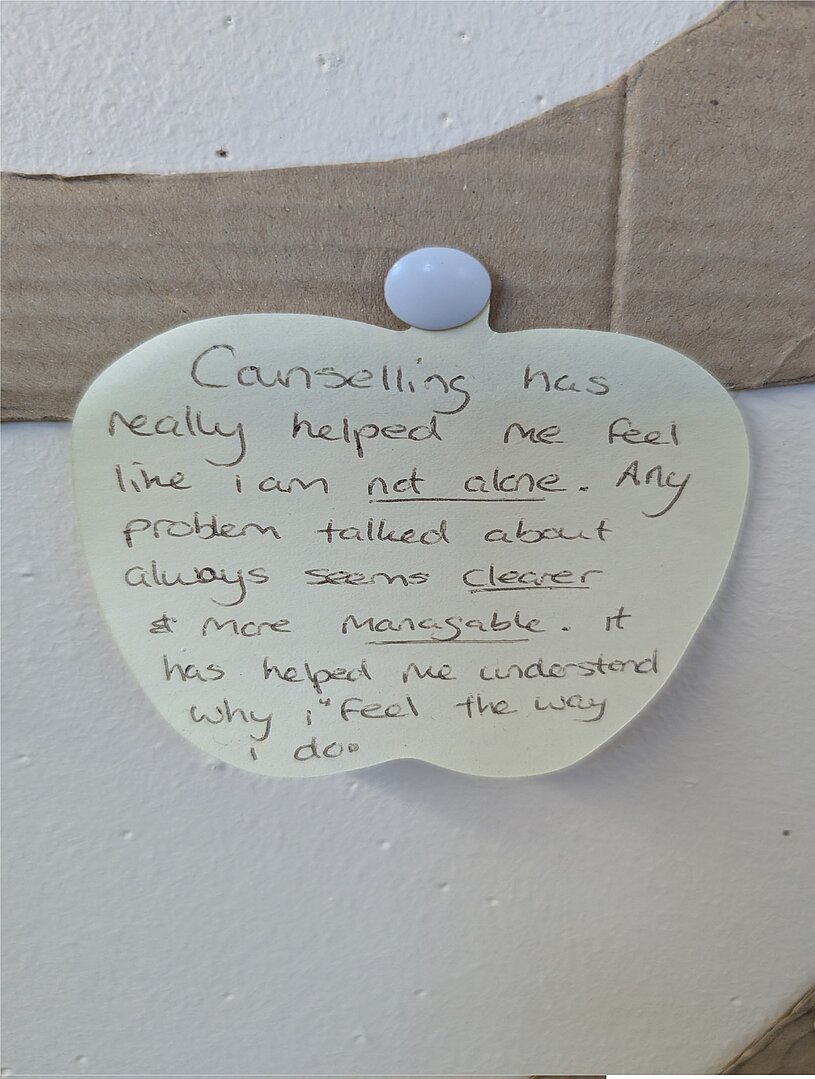 Counselling has
really helped me feel
like i am not alone. Any
problem talked about
always seems clearer
& more managable. it
has helped me understand
why i feel the way
i do.